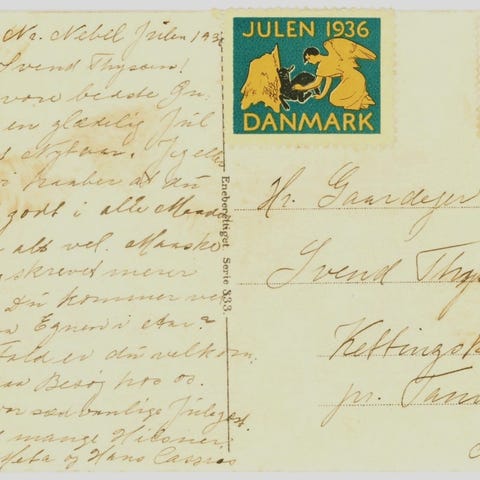 Nr. Nebel Julen 1936
Svend Thysen!
vore bedste Øn
en glædelig Jul
Nytaar. Jeg eller
vi haaber at du
godt i alle Maade
alt vel. Maaske
skrevet merer
Du kommer ved
Egnen i Aar?
Fald er du velkom
Besøg hos os.
vanlige Julegæst.
mange Hilsner,
Meta og Hans
JULEN 1936
DANMARK
Eneberettiget Serie 333
Hr. Gaardejer
Svend Thys
Kettingsk
pr.